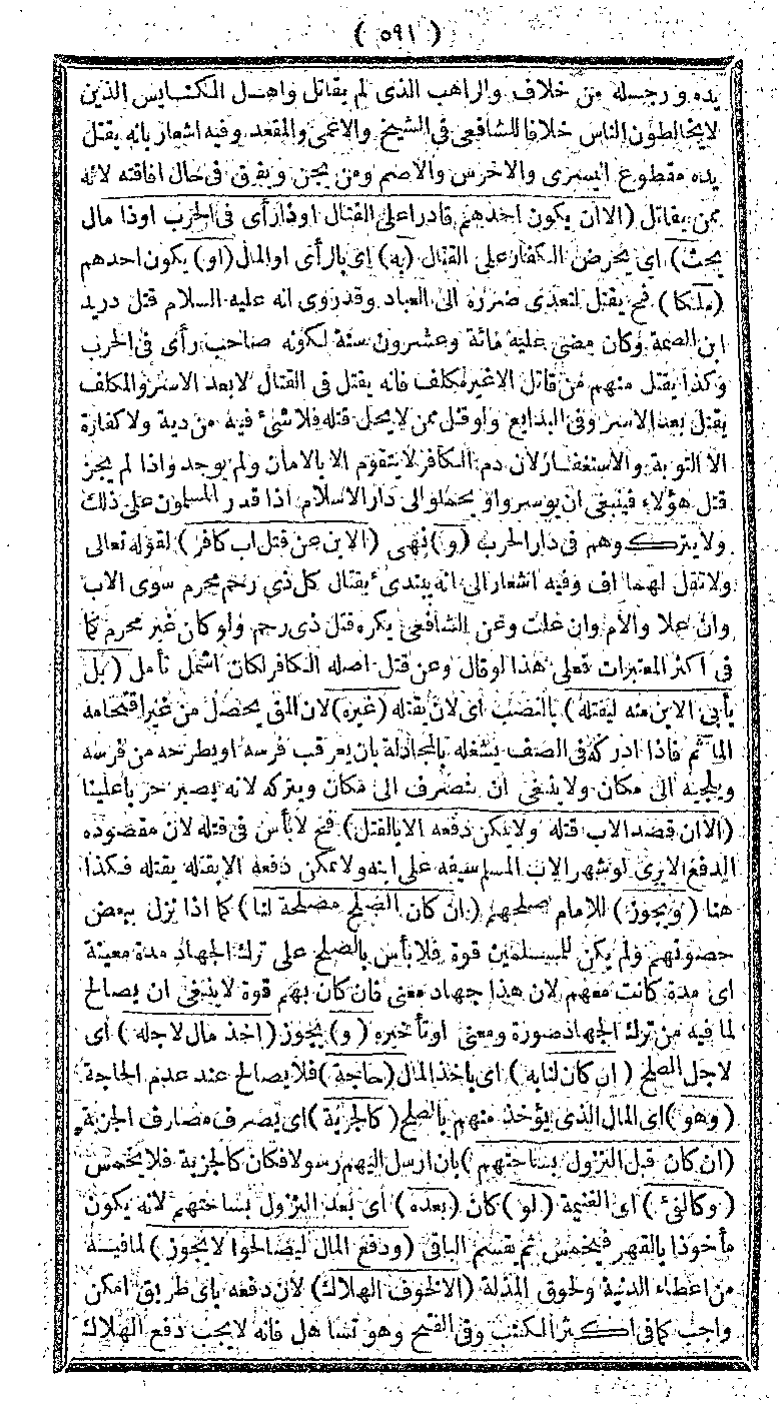 ( ٥٩١ )
يده ورجله من خلاف والراهب الذى لم يقاتل واهل الكنايس الذين
لايخالطون الناس خلافا للشافعى فى الشيخ والاعمى والمقعد وفيه اشعار بانه يقتل
يده مقطوع اليسرى والاخرس والاصم ومن يجن ويفرق فى حال افاقته لانه
ممن يقاتل (الاان يكون احدهم قادرا على القتال اوذارأى فى الحرب اوذا مال
يحث) اى يحرض الكفار على القتال (به) اى بالرأى اوالمال (او) يكون احدهم
(ملكا) فح يقتل لتعدى ضرره الى العباد وقدروى انه عليه السلام قتل دريد
ابن الصمة وكان مضى عليه مائة وعشرون سنة لكونه صاحب رأى فى الحرب
وكذا يقتل منهم من قاتل الاغير مكلف فانه يقتل فى القتال لابعد الاسر والمكلف
يقتل بعد الاسر وفى البدايع ولوقتل ممن لايحل قتله فلاشئ فيه من دية ولاكفارة
الا التوبة والاستغفار لان دم الكافر لايتقوم الا بالامان ولم يوجد واذا لم يجز
قتل هؤلاء فينبغى ان يوسروا و يحملوا الى دارالاسلام اذا قدر المسلمون على ذلك
ولايتركوهم فى دارالحرب (و) نهى (الابن عن قتل اب كافر) لقوله تعالى
ولاتقل لهما اف وفيه اشعار الى انه يبتدئ بقتال كل ذى رحم محرم سوى الاب
وان علا والام وان علت وعن الشافعى يكره قتل ذى رحم ولوكان غير محرم كما
فى اكثر المعتبرات فعلى هذا لوقال وعن قتل اصله الكافر لكان اشمل تأمل (بل
يأبى الابن منه ليقتله) بالنصب اى لان يقتله (غيره) لان المق يحصل من غير اقتحامه
المأثم فاذا ادركه فى الصف يشغله بالمجادلة بان يعرقب فرسه اويطرحه من فرسه
ويلجيه الى مكان ولاينبغى ان ينصرف الى مكان ويتركه لانه يصير حربا علينا
(الاان قصد الاب قتله ولايمكن دفعه الابالقتل) فح لابأس فى قتله لان مقصوده
الدفع الايرى لوشهر الاب المسلم سيفه على ابنه ولايمكن دفعه الابقتله يقتله فكذا
هنا (ويجوز) للامام صلحهم (ان كان الصلح مصلحة لنا) كما اذا نزل ببعض
حصونهم ولم يكن للمسلمين قوة فلابأس بالصلح على ترك الجهاد مدة معينة
اى مدة كانت معهم لان هذا جهاد معنى فان كان بهم قوة لاينبغى ان يصالح
لما فيه من ترك الجهاد صورة ومعنى اوتأخيره (و) يجوز (اخذ مال لاجله) اى
لاجل الصلح (ان كان لنابه) اى باخذ المال (حاجة) فلايصالح عند عدم الحاجة
(وهو) اى المال الذى يؤخذ منهم بالصلح (كالجزية) اى يصرف مصارف الجزية
(ان كان قبل النزول بساحتهم) بان ارسل اليهم رسولا فكان كالجزية فلايخمس
(وكالفئ) اى الغنيمة (لو) كان (بعده) اى بعد النزول بساحتهم لانه يكون
مأخوذا بالقهر فيخمس ثم يقسم الباقى (ودفع المال ليصالحوا لايجوز) لمافيه
من اعطاء الدنية ولحوق المذلة (الالخوف الهلاك) لان دفعه باى طريق امكن
واجب كمافى اكثر الكتب وفى الفتح وهو تساهل فانه لايجب دفع الهلاك